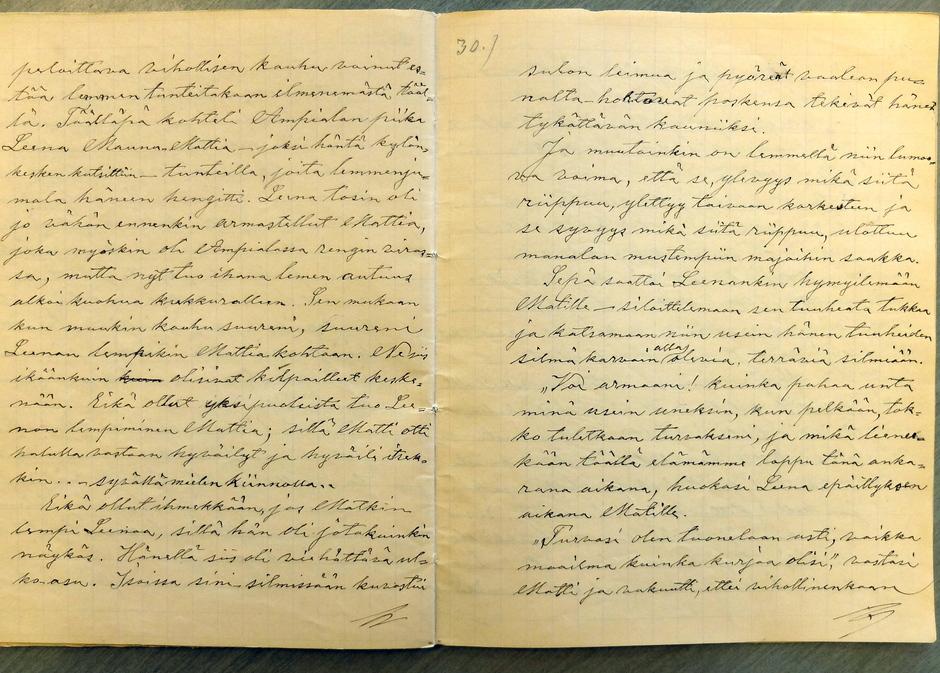 peloittava vihollisen kauhu voinut es=
tää lemmen tunteitakaan ilmenemästä tääl=
lä. Täälläpä kohteli Ampialan piika
Leena Mauna-Mattia – joksi häntä kylän
kesken kutsittiin – tunteilla, joita lemmenju=
mala häneen hengitti. Leena tosin oli
jo vähän ennenkin armastellut Mattia,
joka myöskin oli Ampialassa rengin viras=
sa, mutta nyt tuo ihana lemen autuus
alkoi kuohua kukkuralleen. Sen mukaan
kun muukin kauhu suureni, suureni
Leenan lempikin Mattia kohtaan. Ne siis
ikäänkuin olisivat kilpailleet keske=
nään. Eikä ollut yksipuolista tuo Lee=
nan lempiminen Mattia; sillä Matti otti
halulla vastaan hyväilyt ja hyväili itsek=
kin... sydällä mielen kiinnolla..
Eikä ollut ihmekkään, jos Matkin
lempi Leenaa, sillä hän oli jotakuinkin
näykäs. Hänellä siis oli viehättävä ul=
koasu. Isoissa sini-silmissään kuvastui
30.)
sulon leimua ja pyöreät vaalean pu=
nalta hohtavat poskensa tekivät hänet
tykättävän kauniiksi.
Ja muutoinkin on lemmellä niin lumoa=
va voima, että se, ylevyys mikä siitä
riippuu, ylettyy taivaan korkeuteen ja
se syvyys mikä siitä riippuu, ulottuu
manalan mustempiin majoihin saakka.
Sepä saattoi Leenankin hymyilemään
Matille – siloittelemaan sen tuuheata tukkaa
ja katsamaan niin usein hänen tuuheiden
silmäkarvain alla olevia, terräviä silmiään.
„Voi armaani! kuinka pahaa unta
minä usein uneksin, kun pelkään, tok=
ko tuletkaan turvakseni, ja mikä lienee=
kään täällä elämämme loppu tänä anka=
rana aikana, huokasi Leena epäillyksen
aikana Matille.
„Turvasi olen tuonelaan asti, vaikka
maailma kuinka kurjaa olisi", vastasi
Matti ja vakuutti, ettei vihollinenkaan